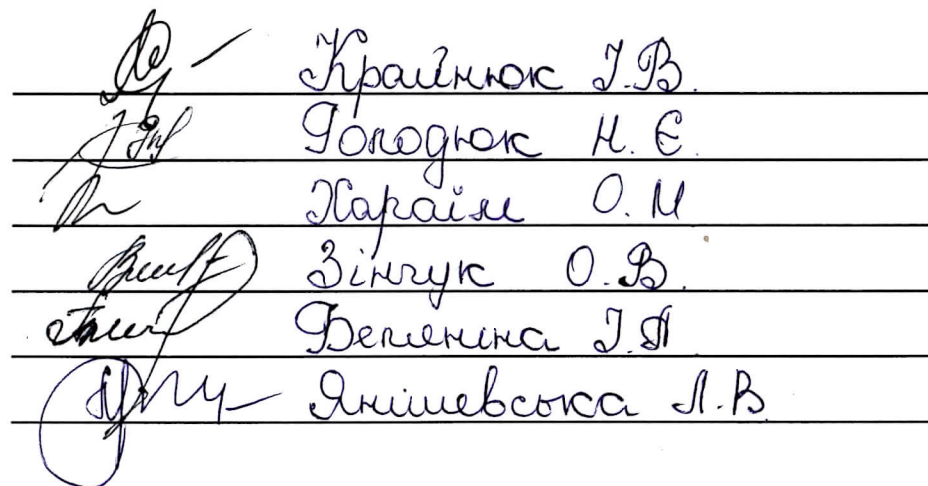 Крайнюк І.В.
Голодюк Н. Є
Хараїм О. М
Зінчук О.В.
Янішевська Л.В